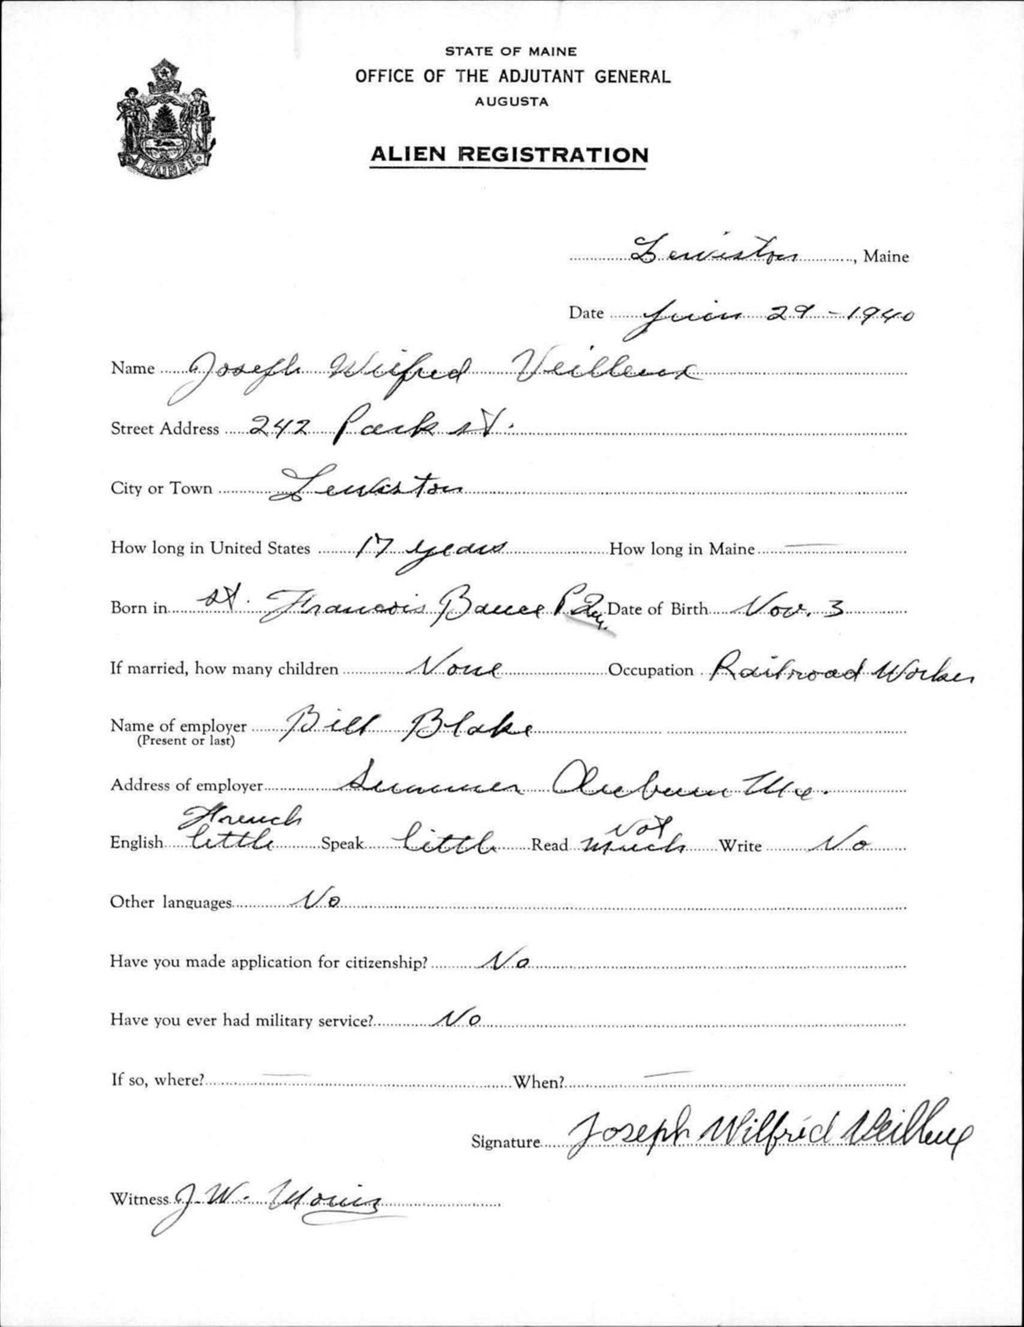 STATE OF MAINE
OFFICE OF THE ADJUTANT GENERAL
AUGUSTA
ALIEN REGISTRATION
MAINE
Lewiston, Maine
Date Juin 29 - 1940
Name Joseph Wilfred Veilleux
Street Address 242 Park st.
City or Town Lewiston
How long in United States 17 years How long in Maine —
Born in st. Francois Bauce P Que. Date of Birth Nov. 3
If married, how many children None Occupation Railroad Worker
Name of employer Bill Blake
(Present or last)
Address of employer Summer Auburn Me.
French Not
English little Speak little Read much Write No
Other languages No
Have you made application for citizenship? No
Have you ever had military service? No
If so, where? — When? —
Signature Joseph Wilfrid Veilleux
Witness J. W.